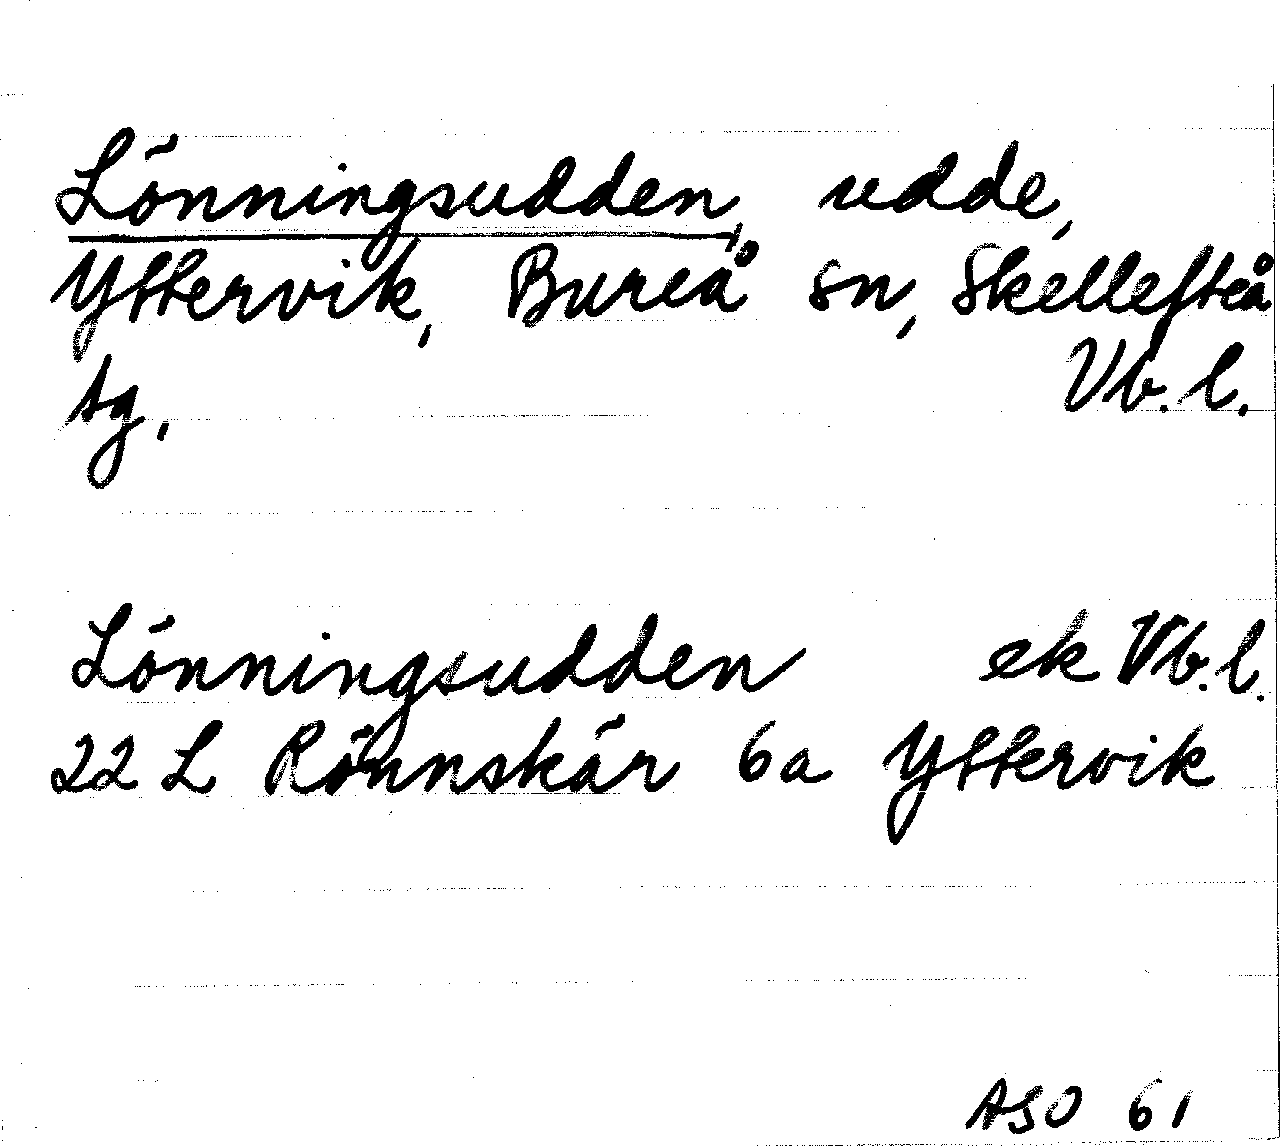 Lönningsudden, udde,
Yttervik, Bureå sn, Skellefteå
tg. Vb. l.
Lönningsudden ek Vb. l.
22 L Rönnskär 6a Yttervik
ASO 61